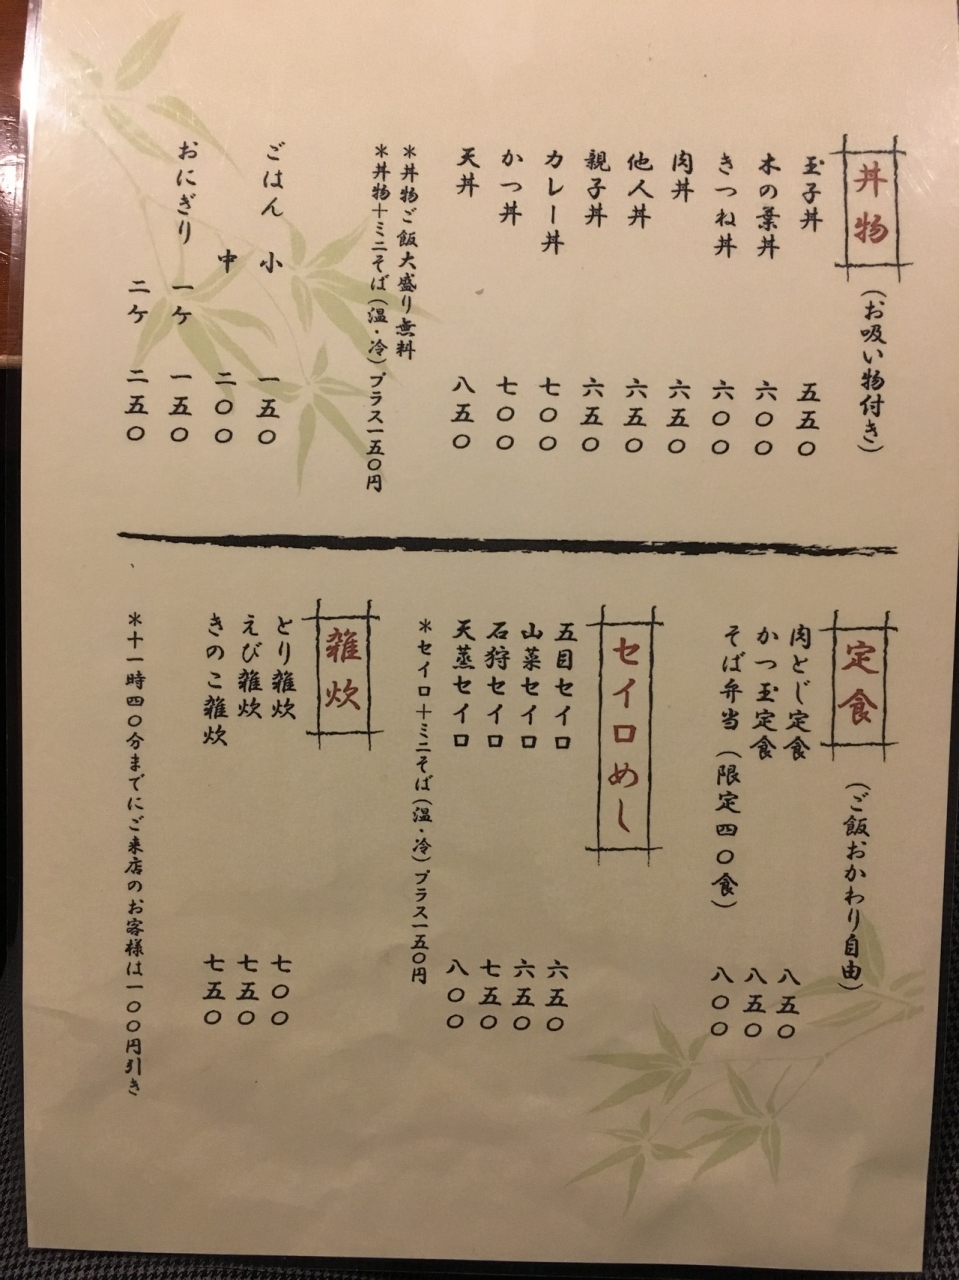 丼物
(お吸い物付き)
玉子丼 五五〇
木の葉丼 六〇〇
きつね丼 六〇〇
肉丼 六五〇
他人丼 六五〇
親子丼 六五〇
カレー丼 七〇〇
かつ丼 七〇〇
天丼 八五〇
*丼物ご飯大盛り無料
*丼物+ミニそば(温・冷)プラス一五〇円
ごはん 小 一五〇
中 二〇〇
おにぎり 一ケ 一五〇
二ケ 二五〇
定食
(ご飯おかわり自由)
肉とじ定食 八五〇
かつ玉定食 八五〇
そば弁当(限定四〇食) 八〇〇
セイロめし
五目セイロ 六五〇
山菜セイロ 六五〇
石狩セイロ 七五〇
天蒸セイロ 八〇〇
*セイロ+ミニそば(温・冷)プラス一五〇円
雑炊
とり雑炊 七〇〇
えび雑炊 七五〇
きのこ雑炊 七五〇
*十一時四〇分までにご来店のお客様は一〇〇円引き